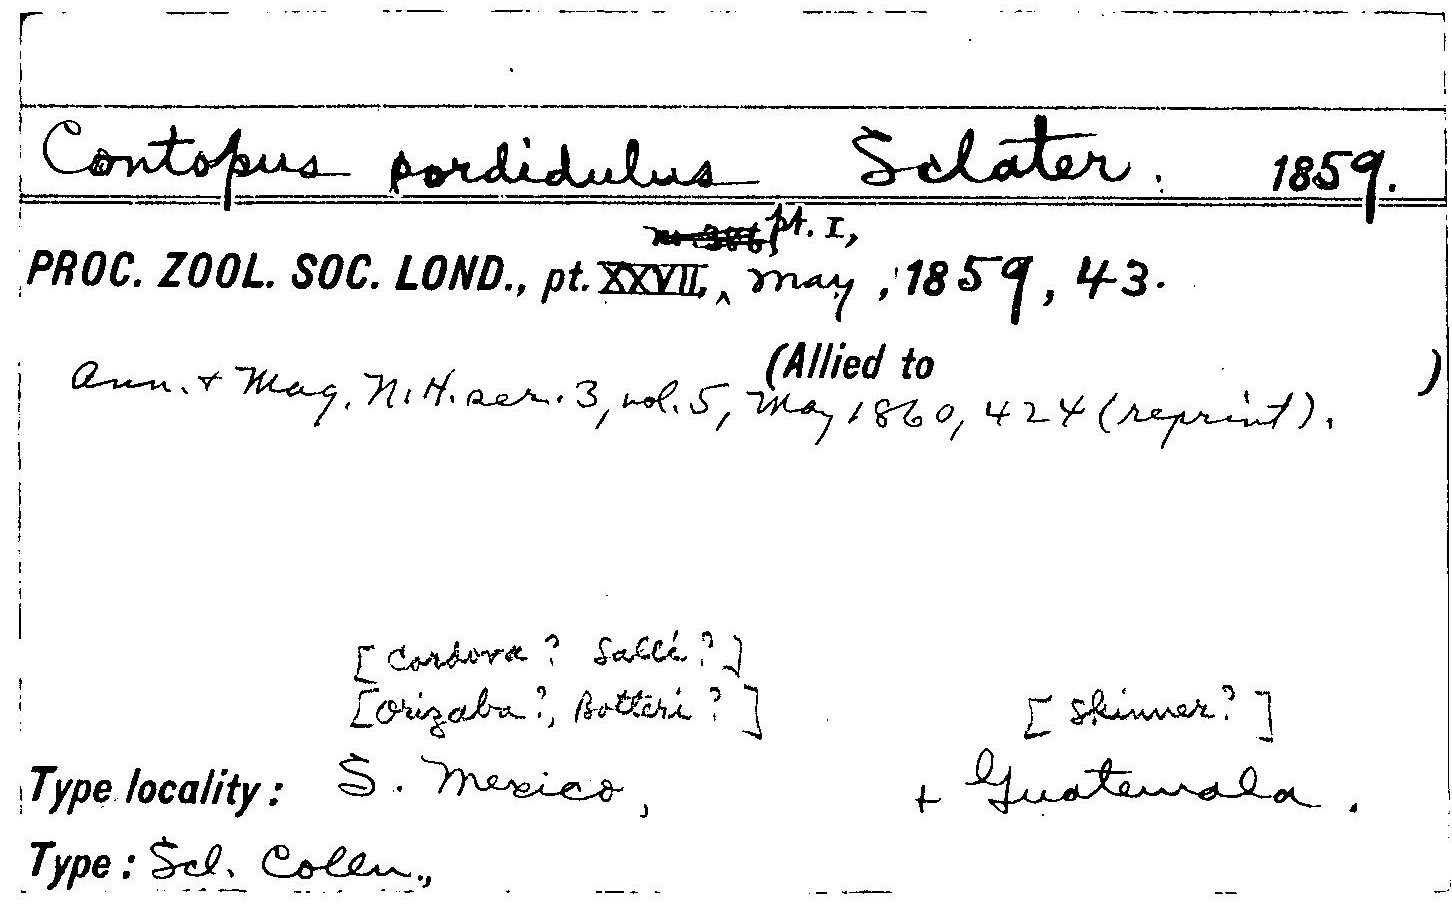 Contopus sordidulus Sclater. 1859.
pt. I,
PROC. ZOOL. SOC. LOND., pt. XXVII, ^ May, 1859, 43.
(Allied to )
Ann. + Mag. N.H. ser. 3, vol. 5, May 1860, 424 (reprint).
[Cordova? Sallé?]
[Orizaba?, Botteri?] [Skinner?]
Type locality: S. Mexico, + Guatemala.
Type: Scl. Colln.,